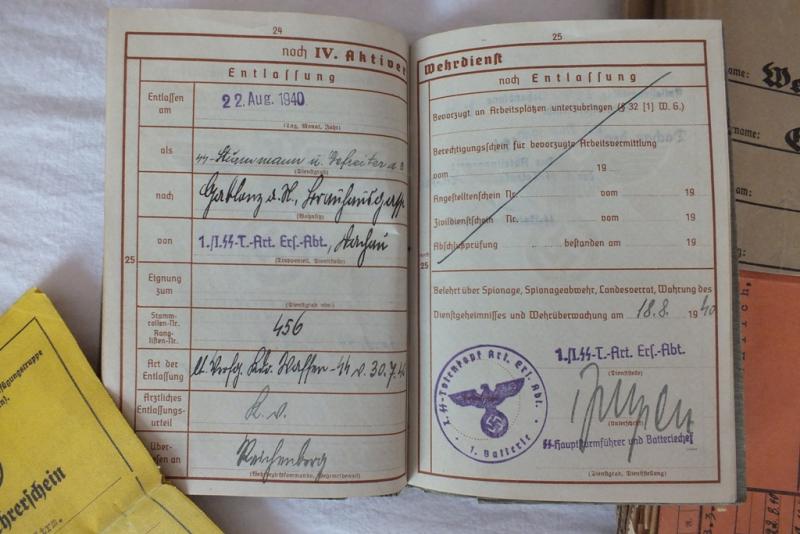 24
noch IV. Aktiver
Entlassung
Entlassen am
22. Aug. 1940
(Tag, Monat, Jahr)
als
ϟϟ-Sturmmann u. Gefreiter d. R
(Dienstgrad)
nach
Gablonz a. N., Brauhausgasse
(Wohnsitz)
von
1./I.SS-T.-Art. Ers.-Abt., Dachau
(Truppenteil, Dienststelle)
25
Eignung zum
Stamm-
rollen-Nr.
Rang-
listen-Nr.
456
Art der
Entlassung
lt. Verfg. Kdo. Waffen-ϟϟ v. 30.7.40
Ärztliches
Entlassungs-
urteil
K. v.
Über-
wiesen an
Reichenberg
25
Wehrdienst
noch Entlassung
Bevorzugt an Arbeitsplätzen unterzubringen (§ 32 [1] W. G.)
Berechtigungsschein für bevorzugte Arbeitsvermittlung
vom 19
Angestelltenschein Nr. vom 19
Zivildienstschein Nr. vom 19
Abschlußprüfung bestanden am 19
25
Belehrt über Spionage, Spionageabwehr, Landesverrat, Wahrung des
Dienstgeheimnisses und Wehrüberwachung am 18.8. 1940
1./I.SS-T.-Art. Ers.-Abt.
(Dienststelle)
(Unterschrift)
ϟϟ-Hauptsturmführer und Batteriechef
(Dienstgrad, Dienststellung)
I. SS-Totenkopf Art. Ers. Abt.
1. Batterie